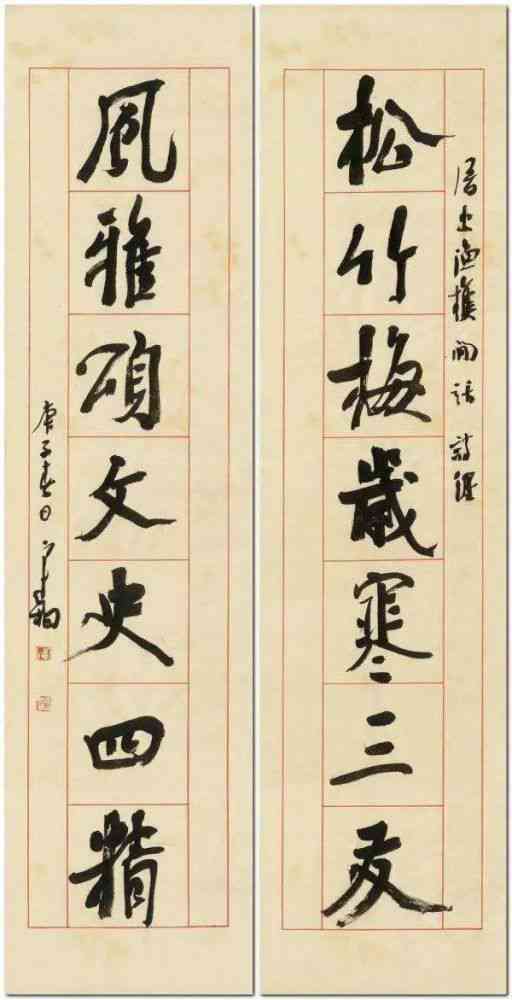 居士漁樵閒話 詩經
松竹梅歲寒三友
風雅頌文史四精
庚子春日